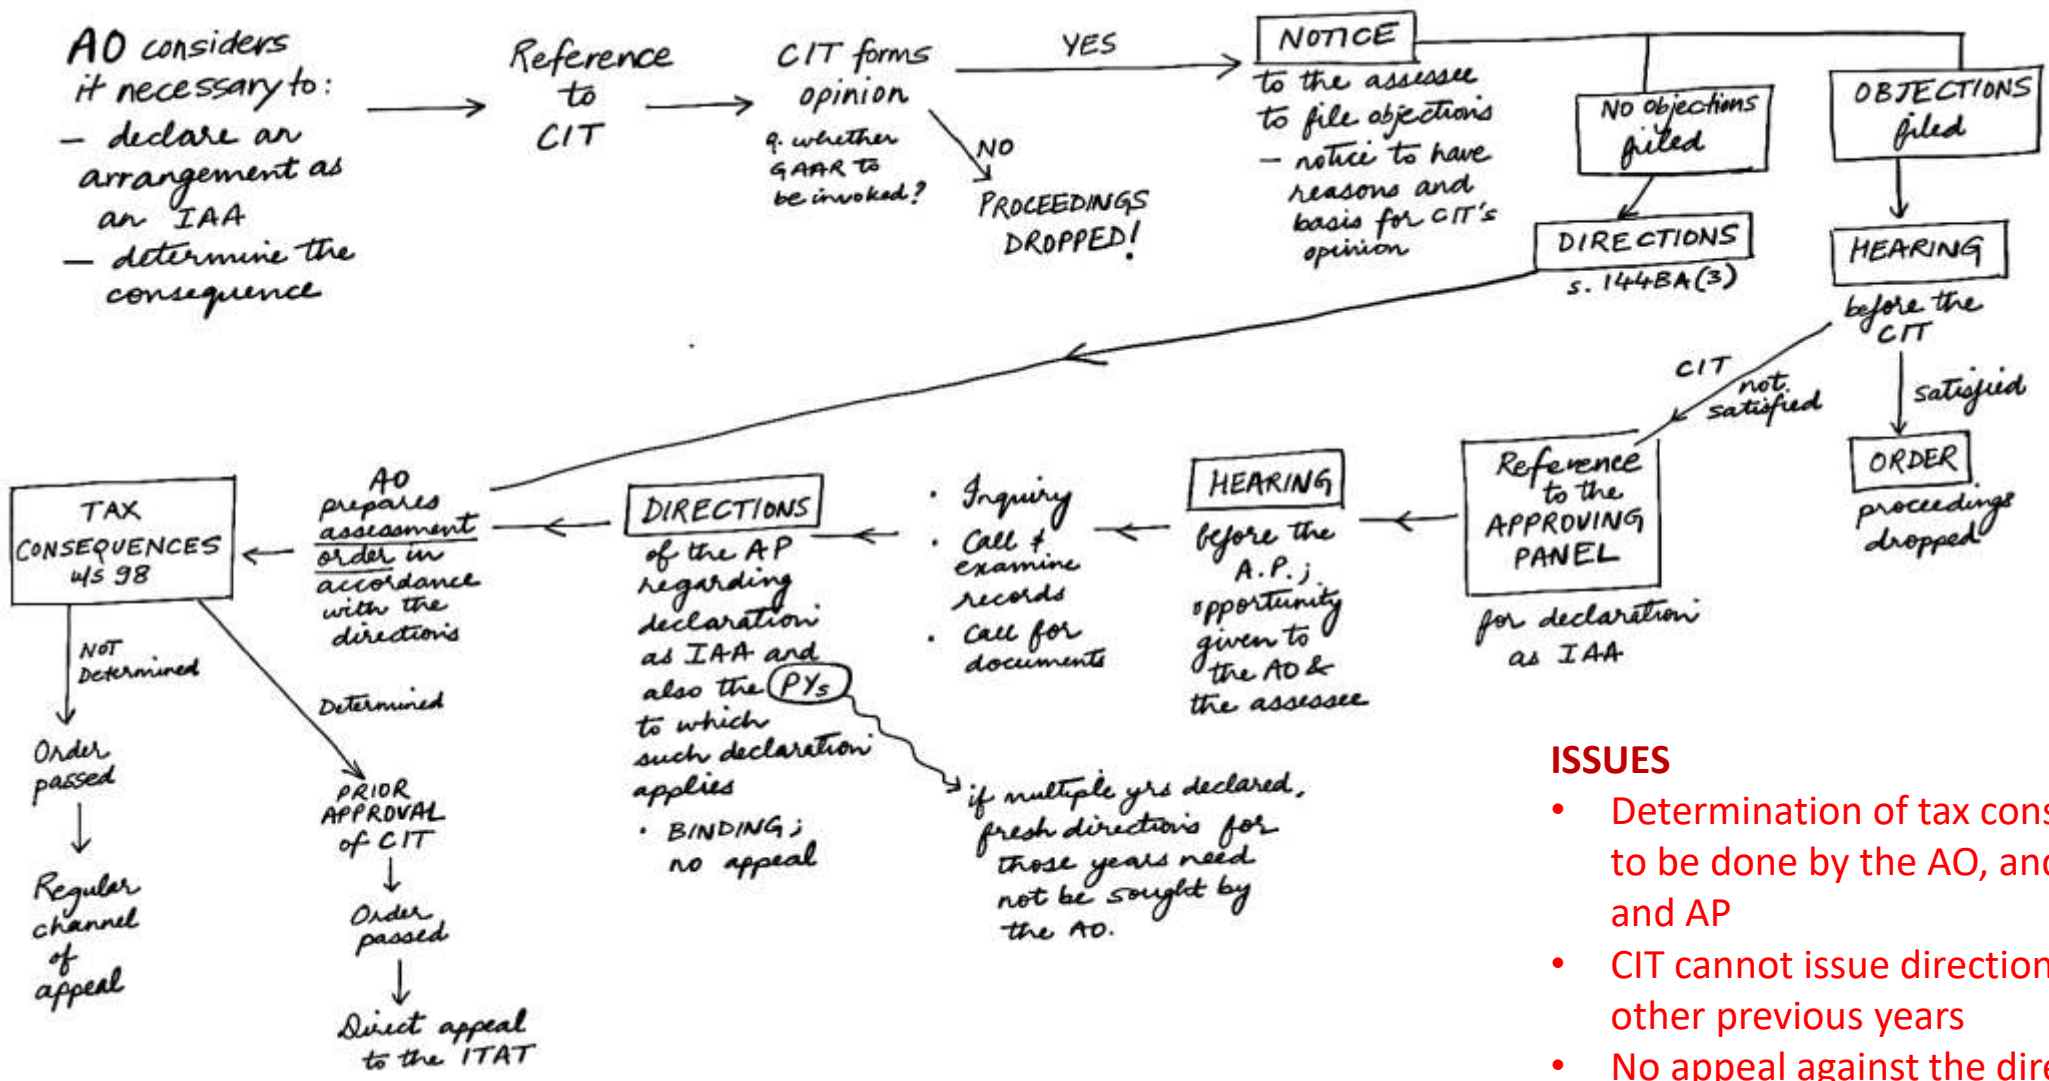 AO considers
it necessary to:
– declare an
arrangement as
an IAA
– determine the
consequence
Reference
to
CIT
CIT forms
opinion
q. whether
GAAR to
be invoked?
YES
NO
PROCEEDINGS
DROPPED!
NOTICE
to the assessee
to file objections
– notice to have
reasons and
basis for CIT's
opinion
NO Objections
filed
DIRECTIONS
s. 144BA(3)
OBJECTIONS
filed
HEARING
before the
CIT
CIT
not
satisfied
satisfied
ORDER
proceedings
dropped
Reference
to the
APPROVING
PANEL
for declaration
as IAA
HEARING
before the
A.P.;
opportunity
given to
the AO &
the assessee
• Inquiry
• Call &
examine
records
• Call for
documents
DIRECTIONS
of the AP
regarding
declaration
as IAA and
also the PYs
to which
such declaration
applies
• BINDING;
no appeal
if multiple yrs declared,
fresh directions for
those years need
not be sought by
the AO.
AO
prepares
assessment
order in
accordance
with the
directions
TAX
CONSEQUENCES
u/s 98
NOT
Determined
Order
passed
Regular
channel
of
appeal
Determined
PRIOR
APPROVAL
of CIT
Order
passed
Direct appeal
to the ITAT
ISSUES
• Determination of tax cons
to be done by the AO, and
and AP
• CIT cannot issue direction
other previous years
• No appeal against the dire